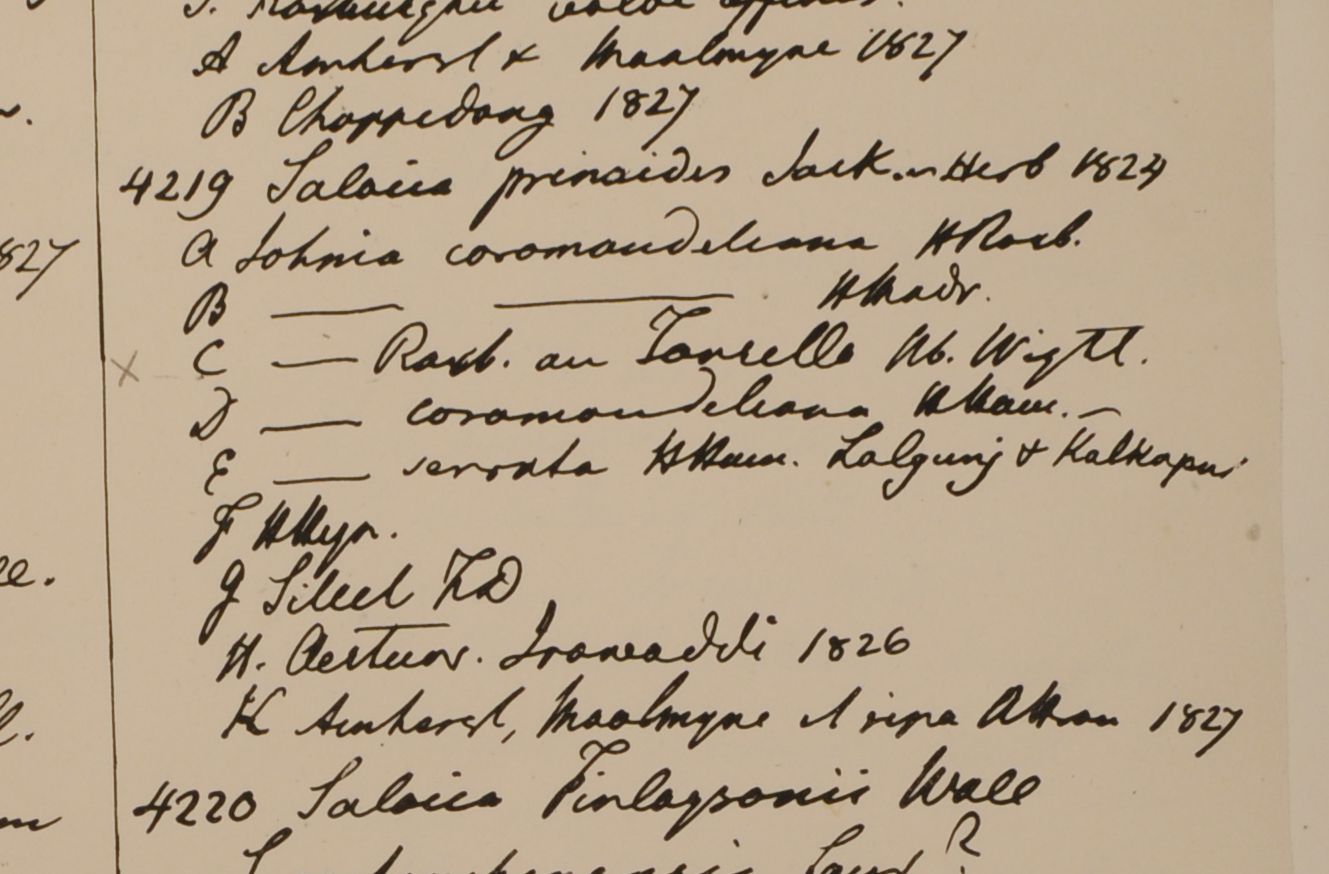 S. Roxburghii valde affinis.
A Amherst & Maalmyne 1827
B Choppedong 1827
4219 Salacia prinoides Jack in Herb 1824
827
a Johnia coromandeliana HRoxb.
B — — HMadr.
x C — Roxb. an Tonsella Hb. Wight.
D — coromandeliana HHam. —
E — serrata HHam. Lalgunj & Kalkapur
F HHeyn.
G Sillet FD
H. Aestuar. Irawaddi 1826
K Amherst, Maalmyne et ripa Attran 1827
4220 Salacia Finlaysonii Wall